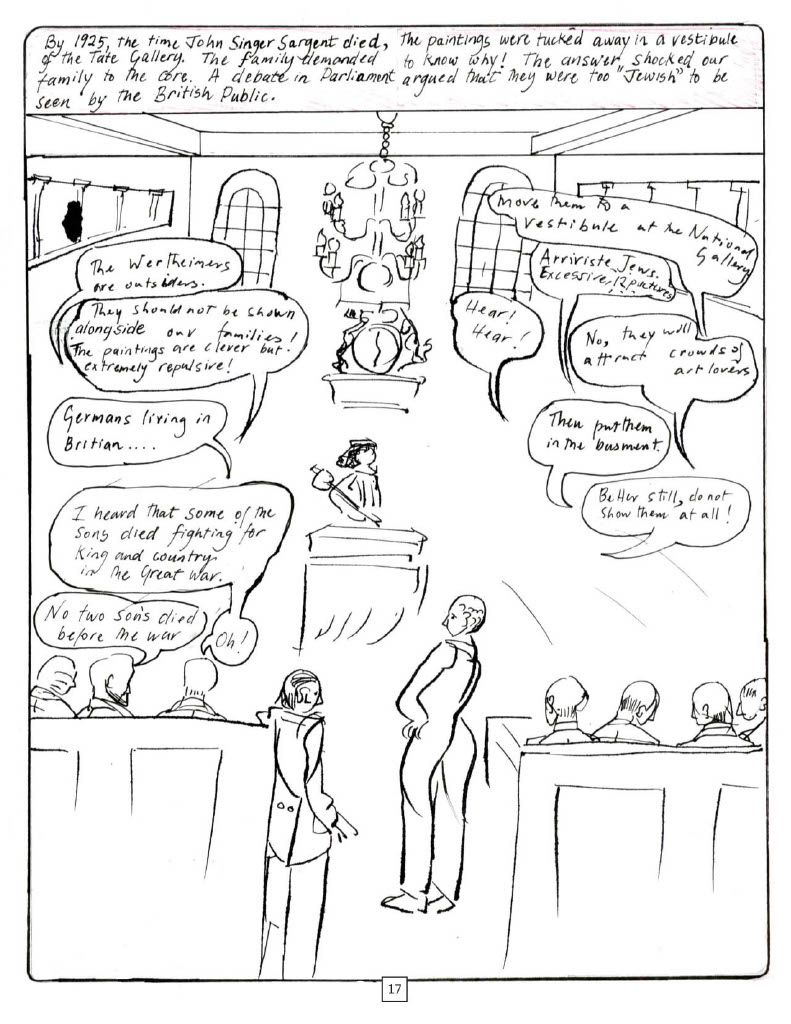 By 1925, the time John Singer Sargent died, The paintings were tucked away in a vestibule
of the Tate Gallery. The family demanded to know why! The answer shocked our
family to the core. A debate in Parliament argued that they were too "Jewish" to be
seen by the British Public.
The Wertheimers
are outsiders.
They should not be shown
alongside our families!
The paintings are clever but
extremely repulsive!
Germans living in
Britian....
I heard that some of the
sons died fighting for
King and country
in the Great War.
No two sons died
before the war
Oh!
Move them to a
vestibule at the National
Gallery
Arriviste Jews.
Excessive, 12 pictures
Hear!
Hear!
No, they will
attract crowds of
art lovers
Then put them
in the basment.
Better still, do not
show them at all!
17